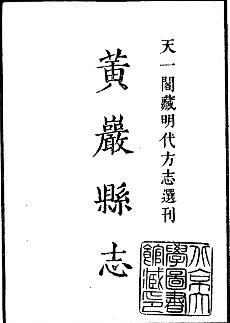 天一閣藏明代方志選刊
黃巖縣志
北京大
學圖書
館藏印